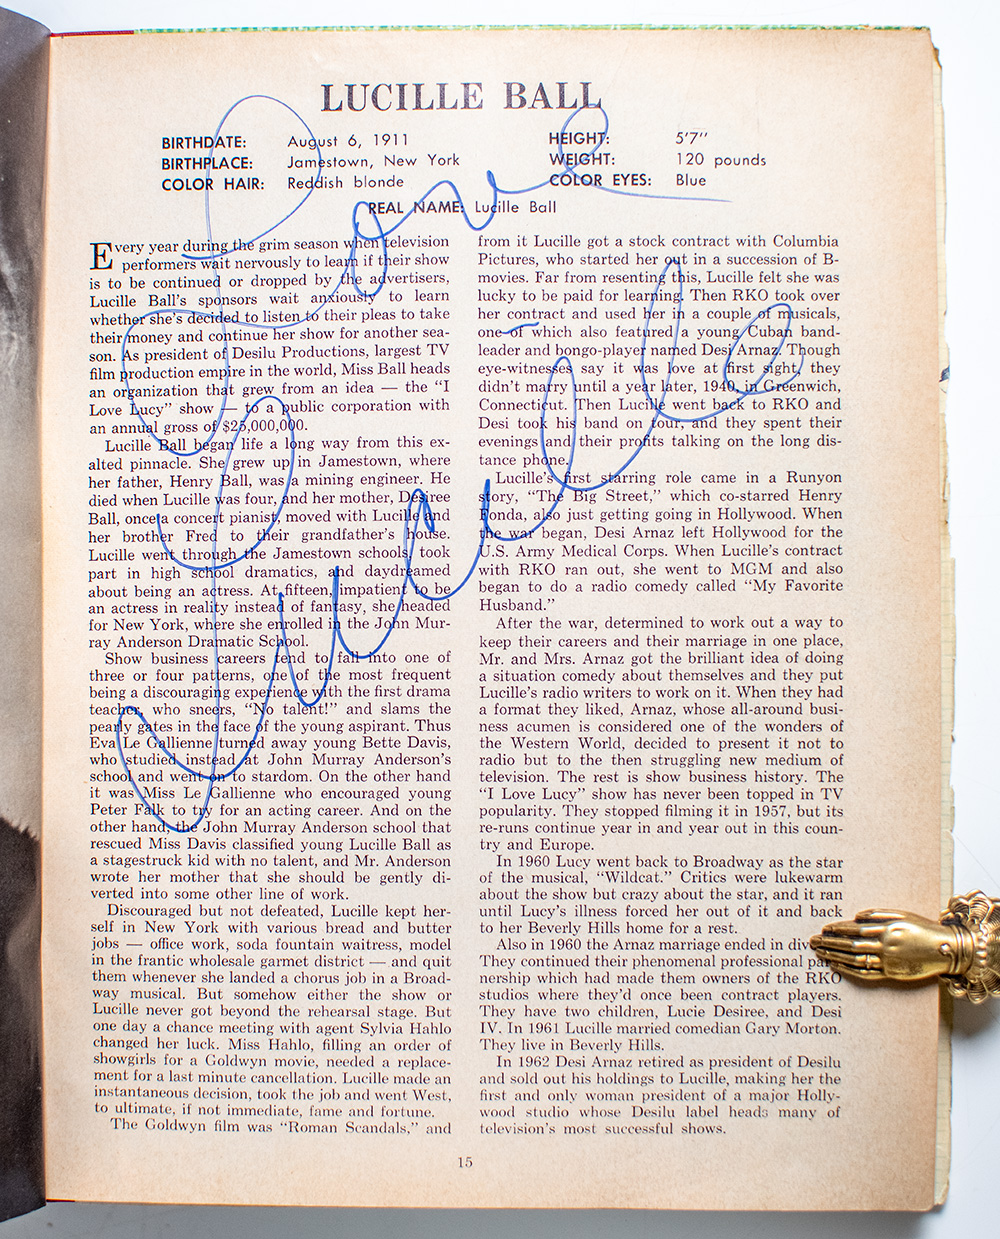 LUCILLE BALL
BIRTHDATE: August 6, 1911
BIRTHPLACE: Jamestown, New York
COLOR HAIR: Reddish blonde
HEIGHT: 5'7"
WEIGHT: 120 pounds
COLOR EYES: Blue
REAL NAME: Lucille Ball
Love
Lucille
Every year during the grim season when television
performers wait nervously to learn if their show
is to be continued or dropped by the advertisers,
Lucille Ball's sponsors wait anxiously to learn
whether she's decided to listen to their pleas to take
their money and continue her show for another sea-
son. As president of Desilu Productions, largest TV
film production empire in the world, Miss Ball heads
an organization that grew from an idea — the "I
Love Lucy" show — to a public corporation with
an annual gross of $25,000,000.
Lucille Ball began life a long way from this ex-
alted pinnacle. She grew up in Jamestown, where
her father, Henry Ball, was a mining engineer. He
died when Lucille was four, and her mother, Desiree
Ball, once a concert pianist, moved with Lucille and
her brother Fred to their grandfather's house.
Lucille went through the Jamestown schools, took
part in high school dramatics, and daydreamed
about being an actress. At fifteen, impatient to be
an actress in reality instead of fantasy, she headed
for New York, where she enrolled in the John Mur-
ray Anderson Dramatic School.
Show business careers tend to fall into one of
three or four patterns, one of the most frequent
being a discouraging experience with the first drama
teacher, who sneers, "No talent!" and slams the
pearly gates in the face of the young aspirant. Thus
Eva Le Gallienne turned away young Bette Davis,
who studied instead at John Murray Anderson's
school and went on to stardom. On the other hand
it was Miss Le Gallienne who encouraged young
Peter Falk to try for an acting career. And on the
other hand, the John Murray Anderson school that
rescued Miss Davis classified young Lucille Ball as
a stagestruck kid with no talent, and Mr. Anderson
wrote her mother that she should be gently di-
verted into some other line of work.
Discouraged but not defeated, Lucille kept her-
self in New York with various bread and butter
jobs — office work, soda fountain waitress, model
in the frantic wholesale garmet district — and quit
them whenever she landed a chorus job in a Broad-
way musical. But somehow either the show or
Lucille never got beyond the rehearsal stage. But
one day a chance meeting with agent Sylvia Hahlo
changed her luck. Miss Hahlo, filling an order of
showgirls for a Goldwyn movie, needed a replace-
ment for a last minute cancellation. Lucille made an
instantaneous decision, took the job and went West,
to ultimate, if not immediate, fame and fortune.
The Goldwyn film was "Roman Scandals," and
from it Lucille got a stock contract with Columbia
Pictures, who started her out in a succession of B-
movies. Far from resenting this, Lucille felt she was
lucky to be paid for learning. Then RKO took over
her contract and used her in a couple of musicals,
one of which also featured a young Cuban band-
leader and bongo-player named Desi Arnaz. Though
eye-witnesses say it was love at first sight, they
didn't marry until a year later, 1940, in Greenwich,
Connecticut. Then Lucille went back to RKO and
Desi took his band on tour, and they spent their
evenings and their profits talking on the long dis-
tance phone.
Lucille's first starring role came in a Runyon
story, "The Big Street," which co-starred Henry
Fonda, also just getting going in Hollywood. When
the war began, Desi Arnaz left Hollywood for the
U.S. Army Medical Corps. When Lucille's contract
with RKO ran out, she went to MGM and also
began to do a radio comedy called "My Favorite
Husband."
After the war, determined to work out a way to
keep their careers and their marriage in one place,
Mr. and Mrs. Arnaz got the brilliant idea of doing
a situation comedy about themselves and they put
Lucille's radio writers to work on it. When they had
a format they liked, Arnaz, whose all-around busi-
ness acumen is considered one of the wonders of
the Western World, decided to present it not to
radio but to the then struggling new medium of
television. The rest is show business history. The
"I Love Lucy" show has never been topped in TV
popularity. They stopped filming it in 1957, but its
re-runs continue year in and year out in this coun-
try and Europe.
In 1960 Lucy went back to Broadway as the star
of the musical, "Wildcat." Critics were lukewarm
about the show but crazy about the star, and it ran
until Lucy's illness forced her out of it and back
to her Beverly Hills home for a rest.
Also in 1960 the Arnaz marriage ended in
They continued their phenomenal professional
nership which had made them owners of the RKO
studios where they'd once been contract players.
They have two children, Lucie Desiree, and Desi
IV. In 1961 Lucille married comedian Gary Morton.
They live in Beverly Hills.
In 1962 Desi Arnaz retired as president of Desilu
and sold out his holdings to Lucille, making her the
first and only woman president of a major Holly-
wood studio whose Desilu label heads many of
television's most successful shows.
15